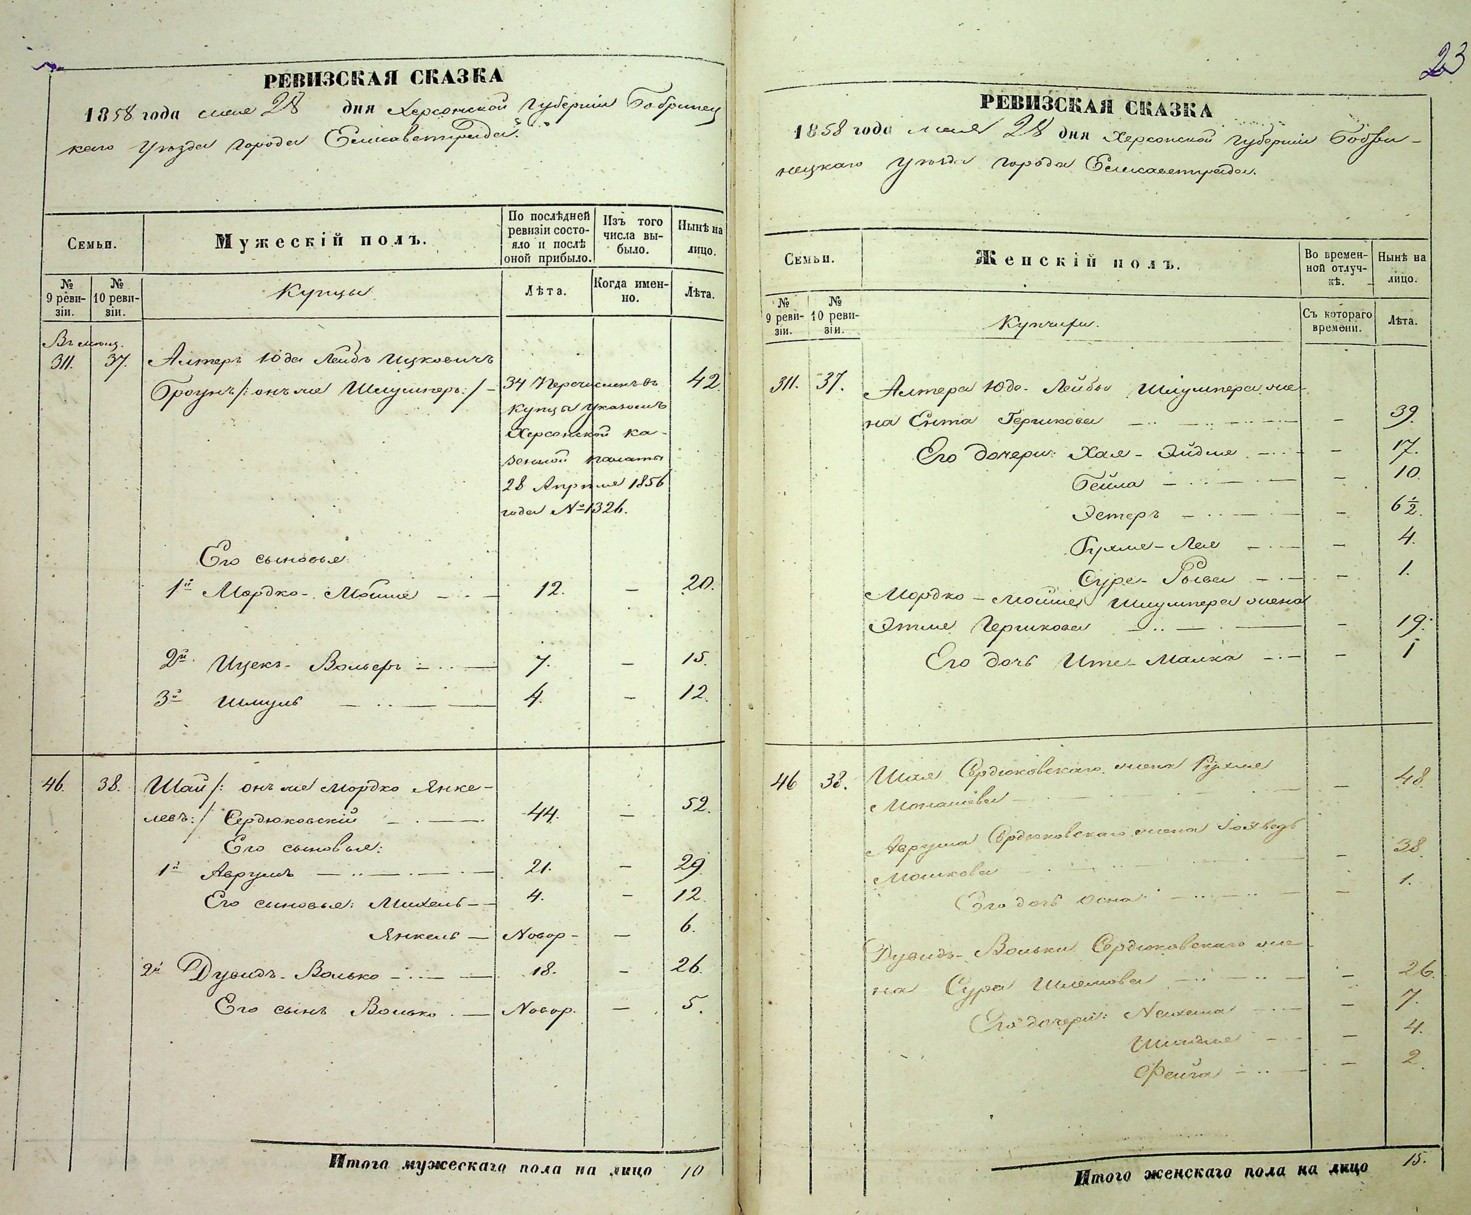 23
РЕВИЗСКАЯ СКАЗКА
1858 года мая 28 дня Херсонской Губерніи Бобринец
каго уѣзда города Елисаветграда.
Семьи.
Мужескій полъ.
По послѣдней ревизіи состояло и послѣ оной прибыло.
Изъ того числа выбыло.
Нынѣ на лицо.
№ 9 ревизіи.
№ 10 ревизіи.
Купцы
Лѣта.
Когда именно.
Лѣта.
311. 37. Алтеръ Юда Лейбъ Ицковичъ
Броунъ /: онъ же Шлумперъ :/ — 34 Перечисленъ въ 42.
купцы указомъ
Херсонской ка-
зенной палаты
28 Апрѣля 1856
года № 1326.
Его сыновья
1й Мордко-Мойше — 12. — 20.
2й Ицекъ-Вольфъ — 7. — 15.
3й Шмуль — 4. — 12.
46. 38. Шая /: онъ же Мордко Янке-
левъ :/ Сердюковскій — 44. — 52.
Его сыновья:
1й Аврумъ — 21. — 29.
Его сыновья: Михель — 4. — 12.
Янкель — Новор. — 6.
2й Дувидъ-Волько — 18. — 26.
Его сынъ Волько — Новор. — 5.
Итого мужескаго пола на лицо 10
РЕВИЗСКАЯ СКАЗКА
1858 года мая 28 дня Херсонской Губерніи Бобри-
нецкаго уѣзда города Елисаветграда.
Семьи.
Женскій полъ.
Во временной отлучкѣ.
Нынѣ на лицо.
№ 9 ревизіи.
№ 10 ревизіи.
Съ котораго времени.
Лѣта.
311. 37. Алтера Юда-Лейбы Шлумпера же-
на Ента Гершкова — — 39.
Его дочери: Хая-Эйдля — — 17.
Бейла — — 10.
Эстеръ — — 6 1/2.
Рухля-Лея — — 4.
Сура- — — 1.
Мордко-Мойше Шлумпера жена
Этля Гершкова — — 19.
Его дочь Ите-Малка — — 1
46 38. Шая Сердюковскаго жена Рухля
— 48.
Аврума Сердюковскаго жена
Мошкова — — 38.
Его дочь — — 1.
Дувидъ-Вольки Сердюковскаго же-
на Сура Шлемова — — 26.
Его дочери: Нехама — — 7.
— — 4.
Фейга — — 2.
Итого женскаго пола на лицо 15.